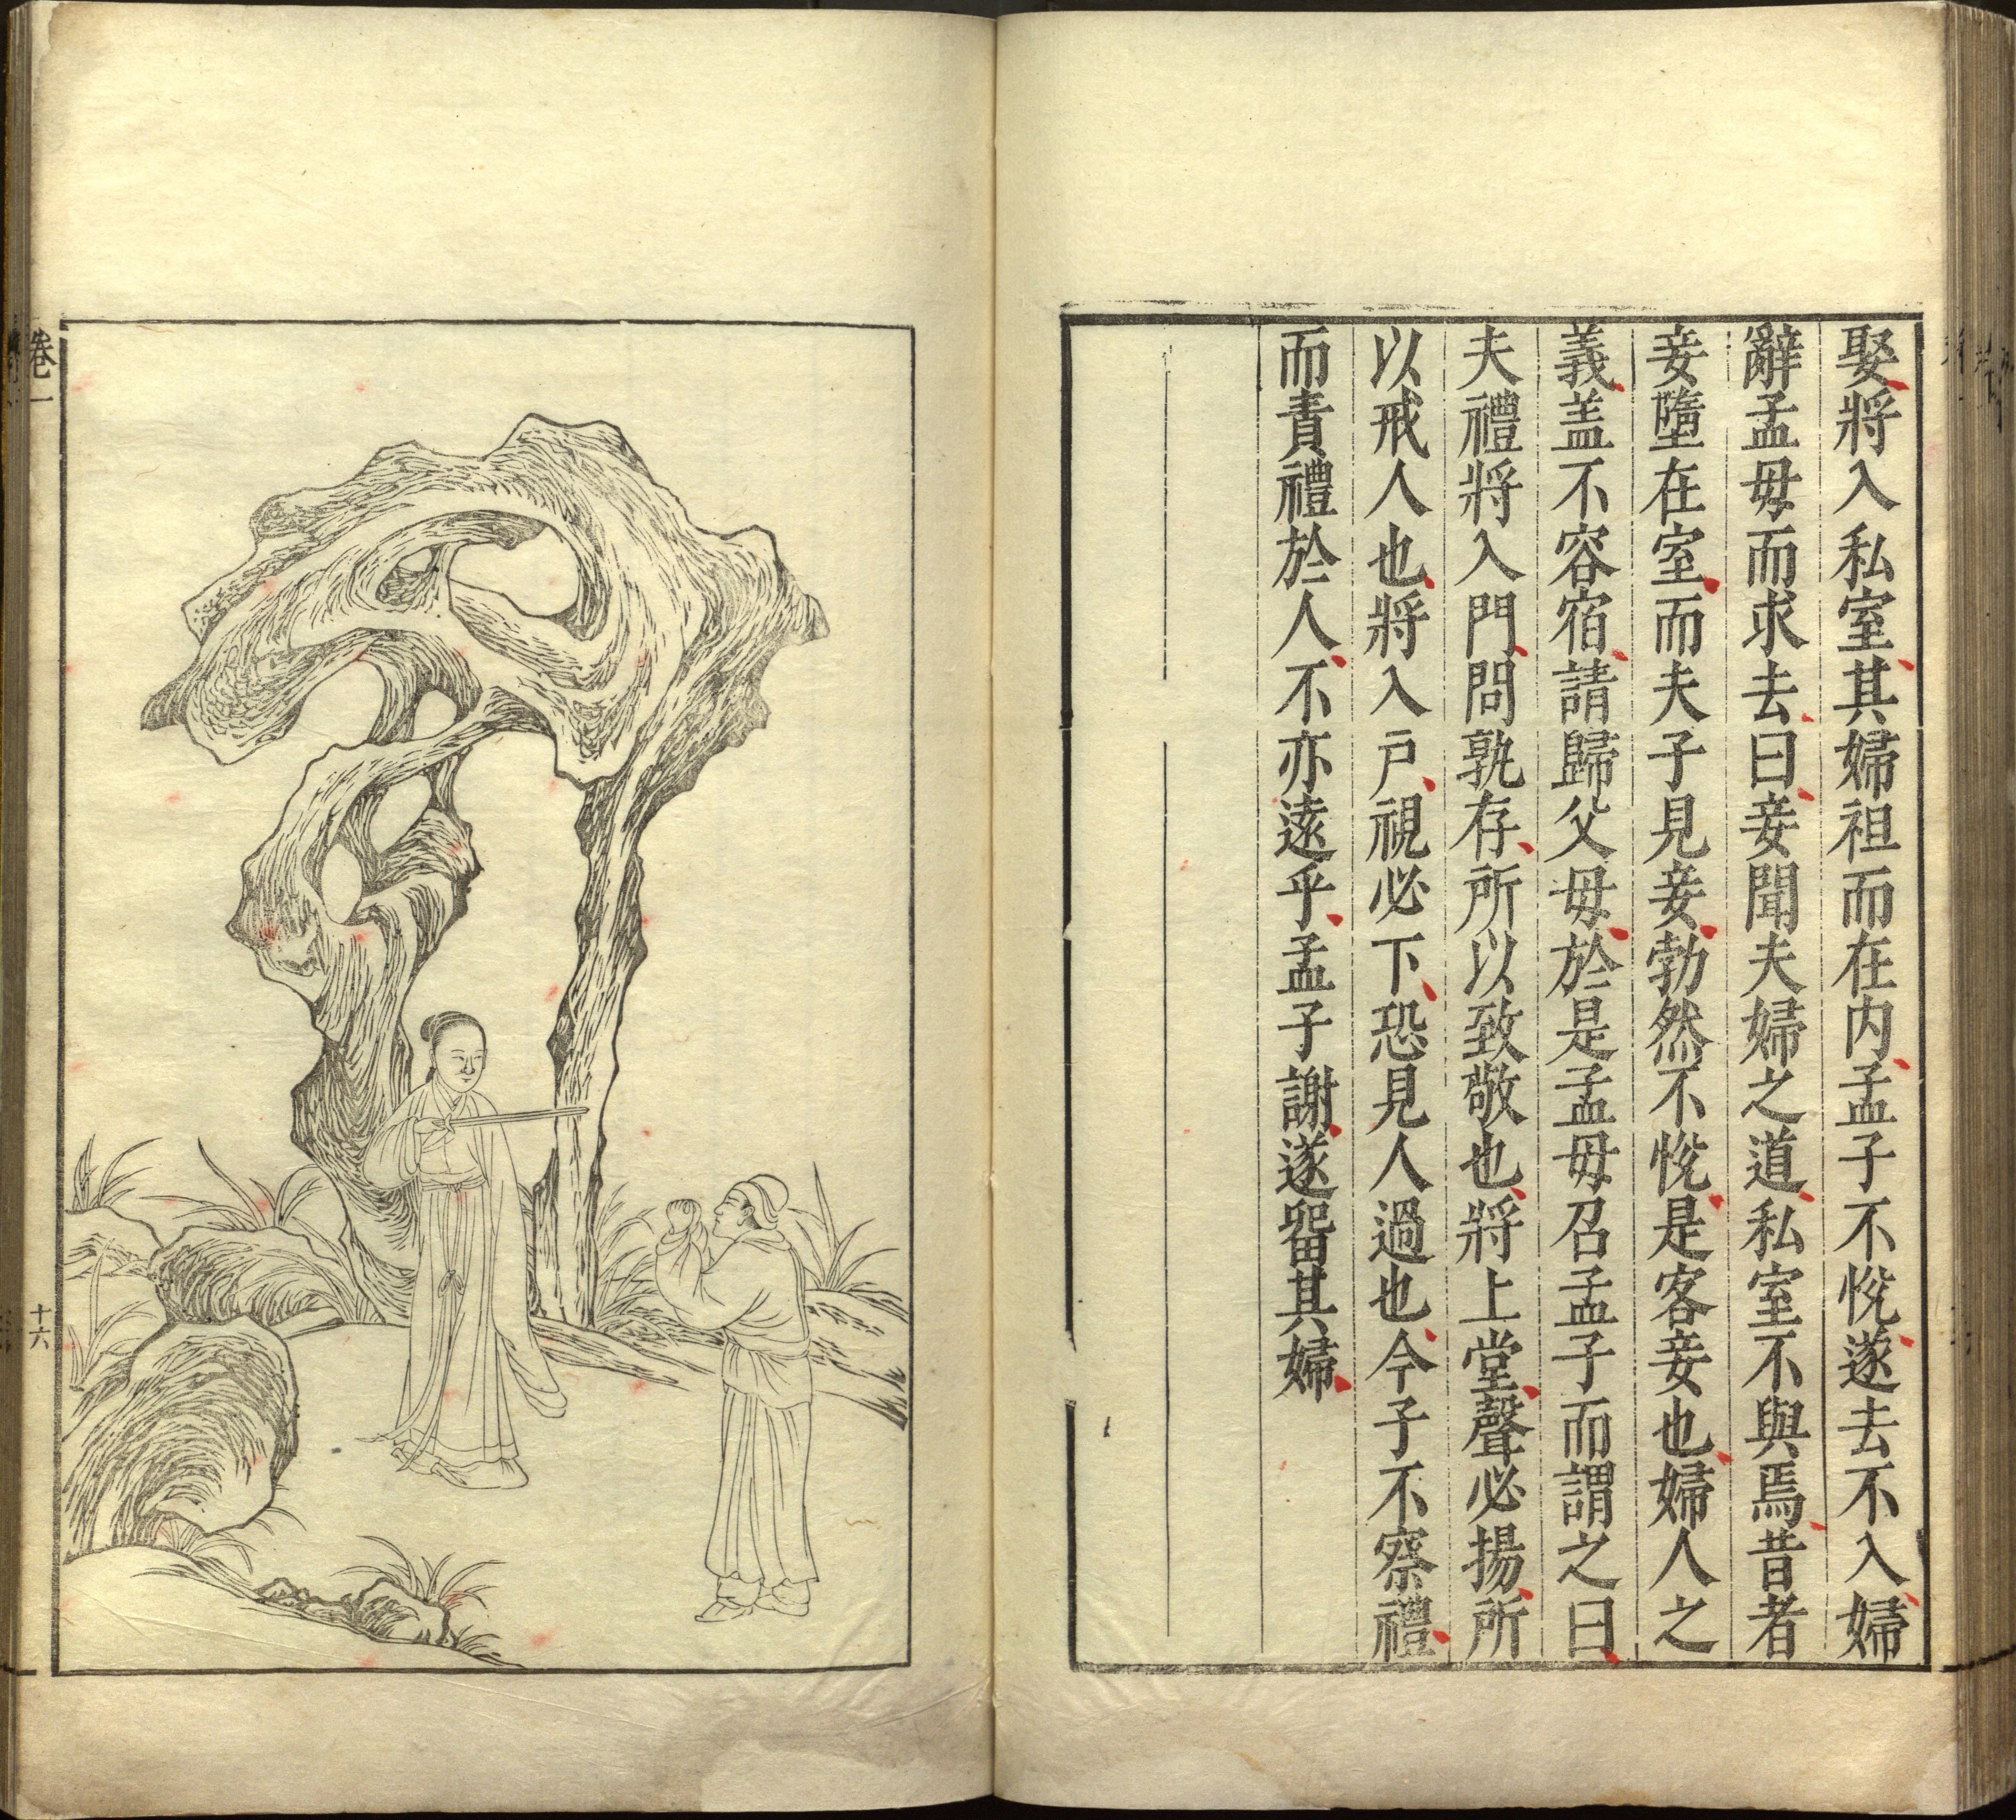 娶將入私室其婦袒而在内孟子不悅遂去不入婦
辭孟母而求去曰妾聞夫婦之道私室不與焉昔者
妾墮在室而夫子見妾勃然不悅是客妾也婦人之
義盖不容宿請歸父母於是孟母召孟子而謂之曰
夫禮將入門問孰存所以致敬也將上堂聲必揚所
以戒人也將入戶視必下恐見人過也今子不察禮
而責禮於人不亦逺乎孟子謝遂畱其婦
卷一
十六